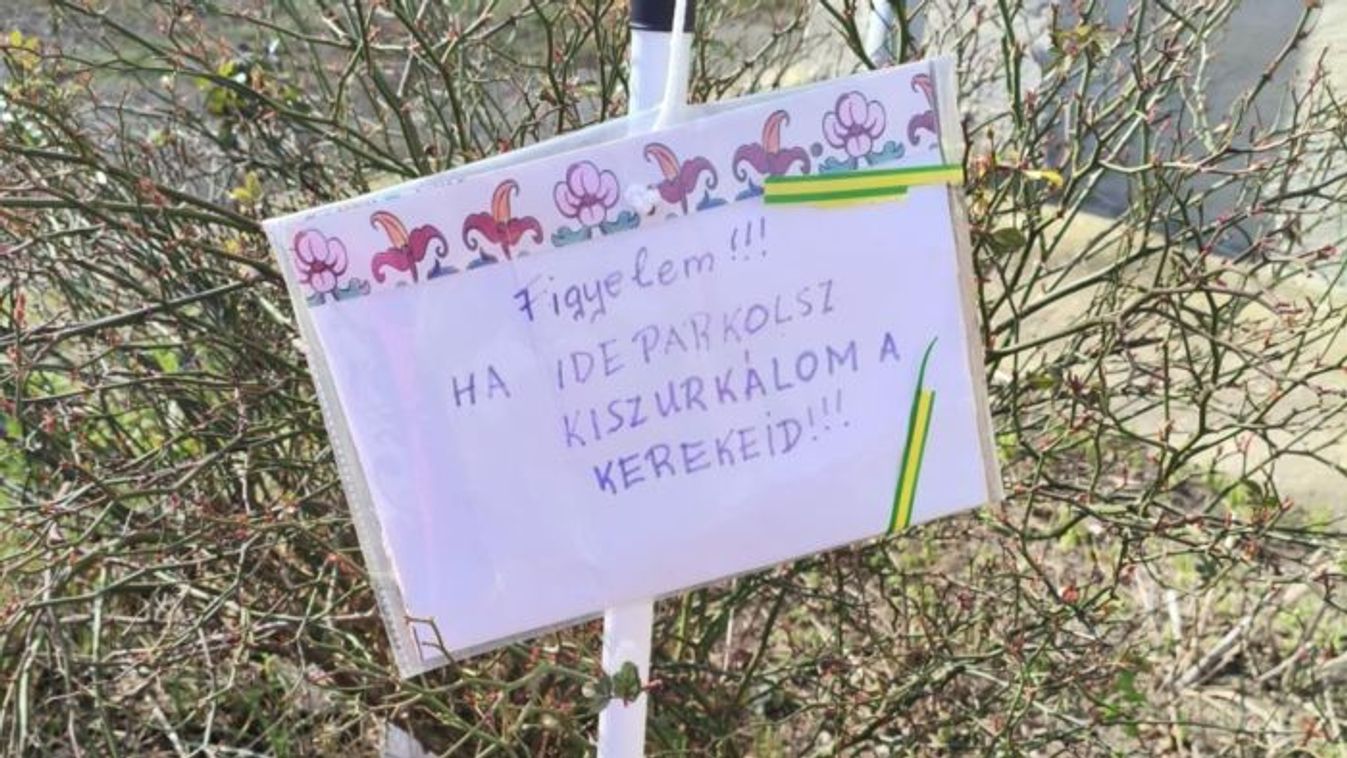 Figyelem!!!
HA IDE PARKOLSZ
KISZURKÁLOM A
KEREKEID!!!